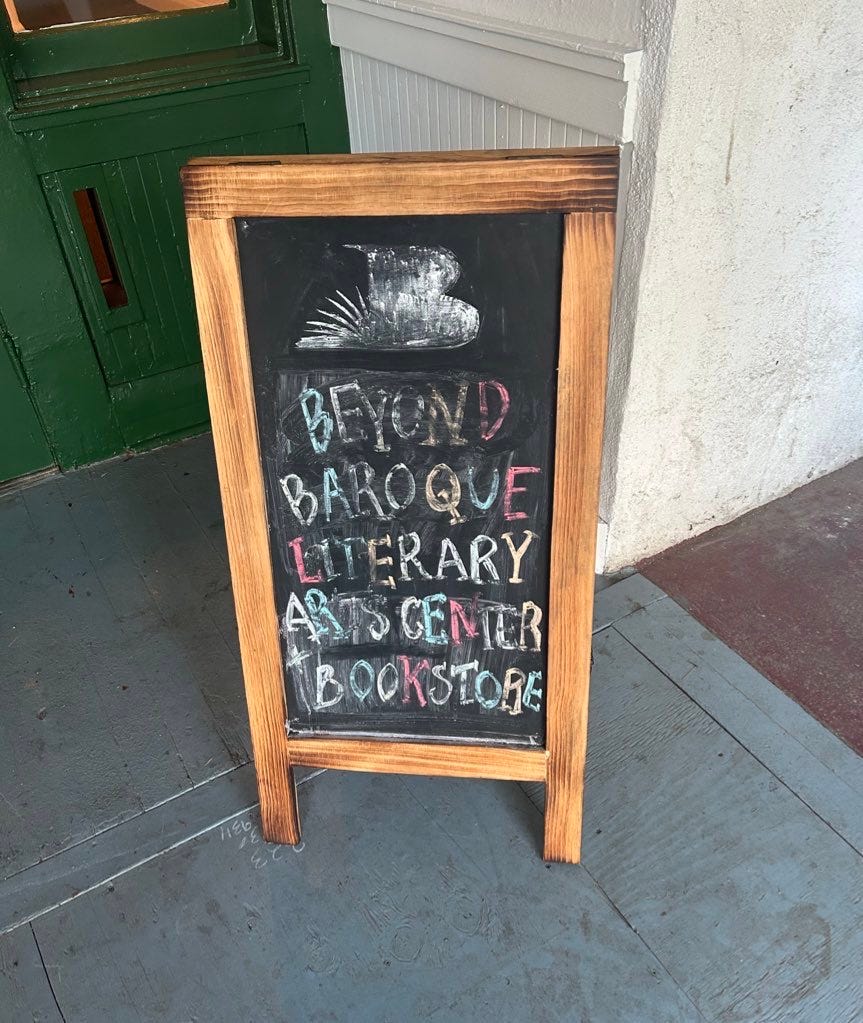 BEYOND
BAROQUE
LITERARY
ARTS CENTER
+ BOOKSTORE